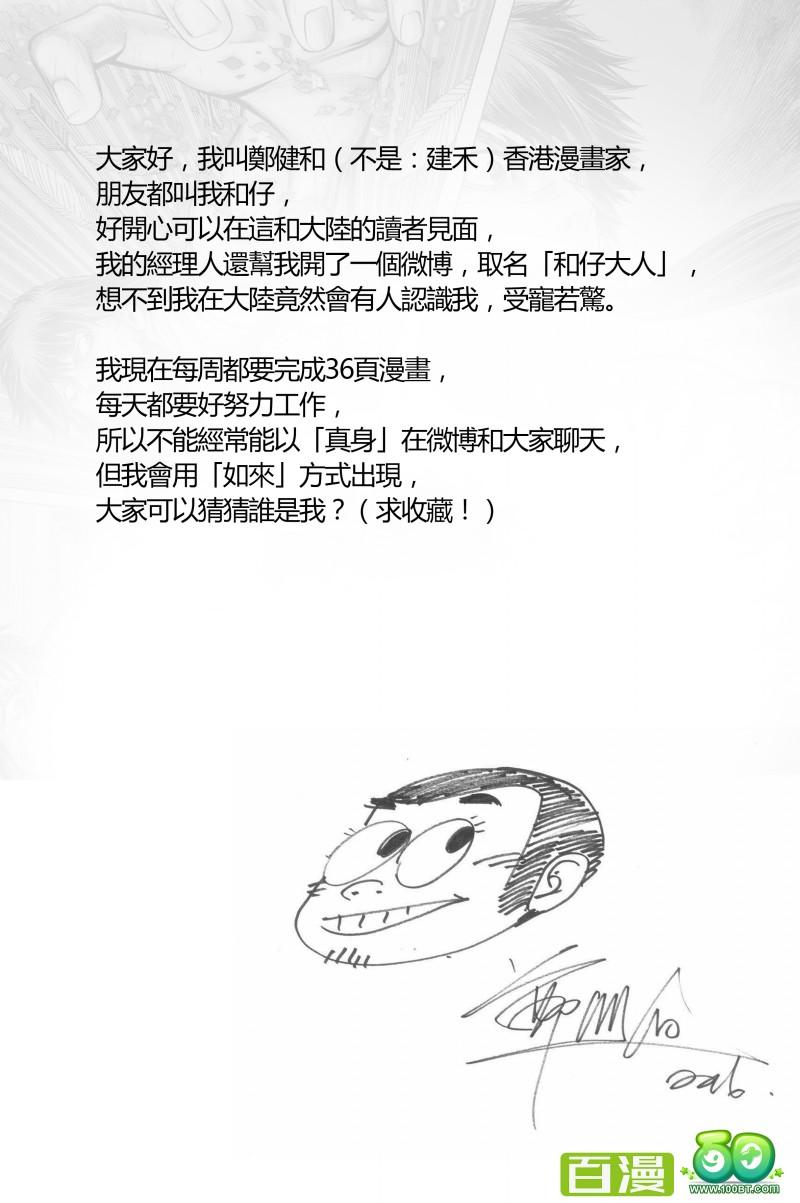 大家好，我叫鄭健和（不是：建禾）香港漫畫家，
朋友都叫我和仔，
好開心可以在這和大陸的讀者見面，
我的經理人還幫我開了一個微博，取名「和仔大人」，
想不到我在大陸竟然會有人認識我，受寵若驚。
我現在每周都要完成36頁漫畫，
每天都要好努力工作，
所以不能經常能以「真身」在微博和大家聊天，
但我會用「如來」方式出現，
大家可以猜猜誰是我？（求收藏！）
百漫
www.100BT.com